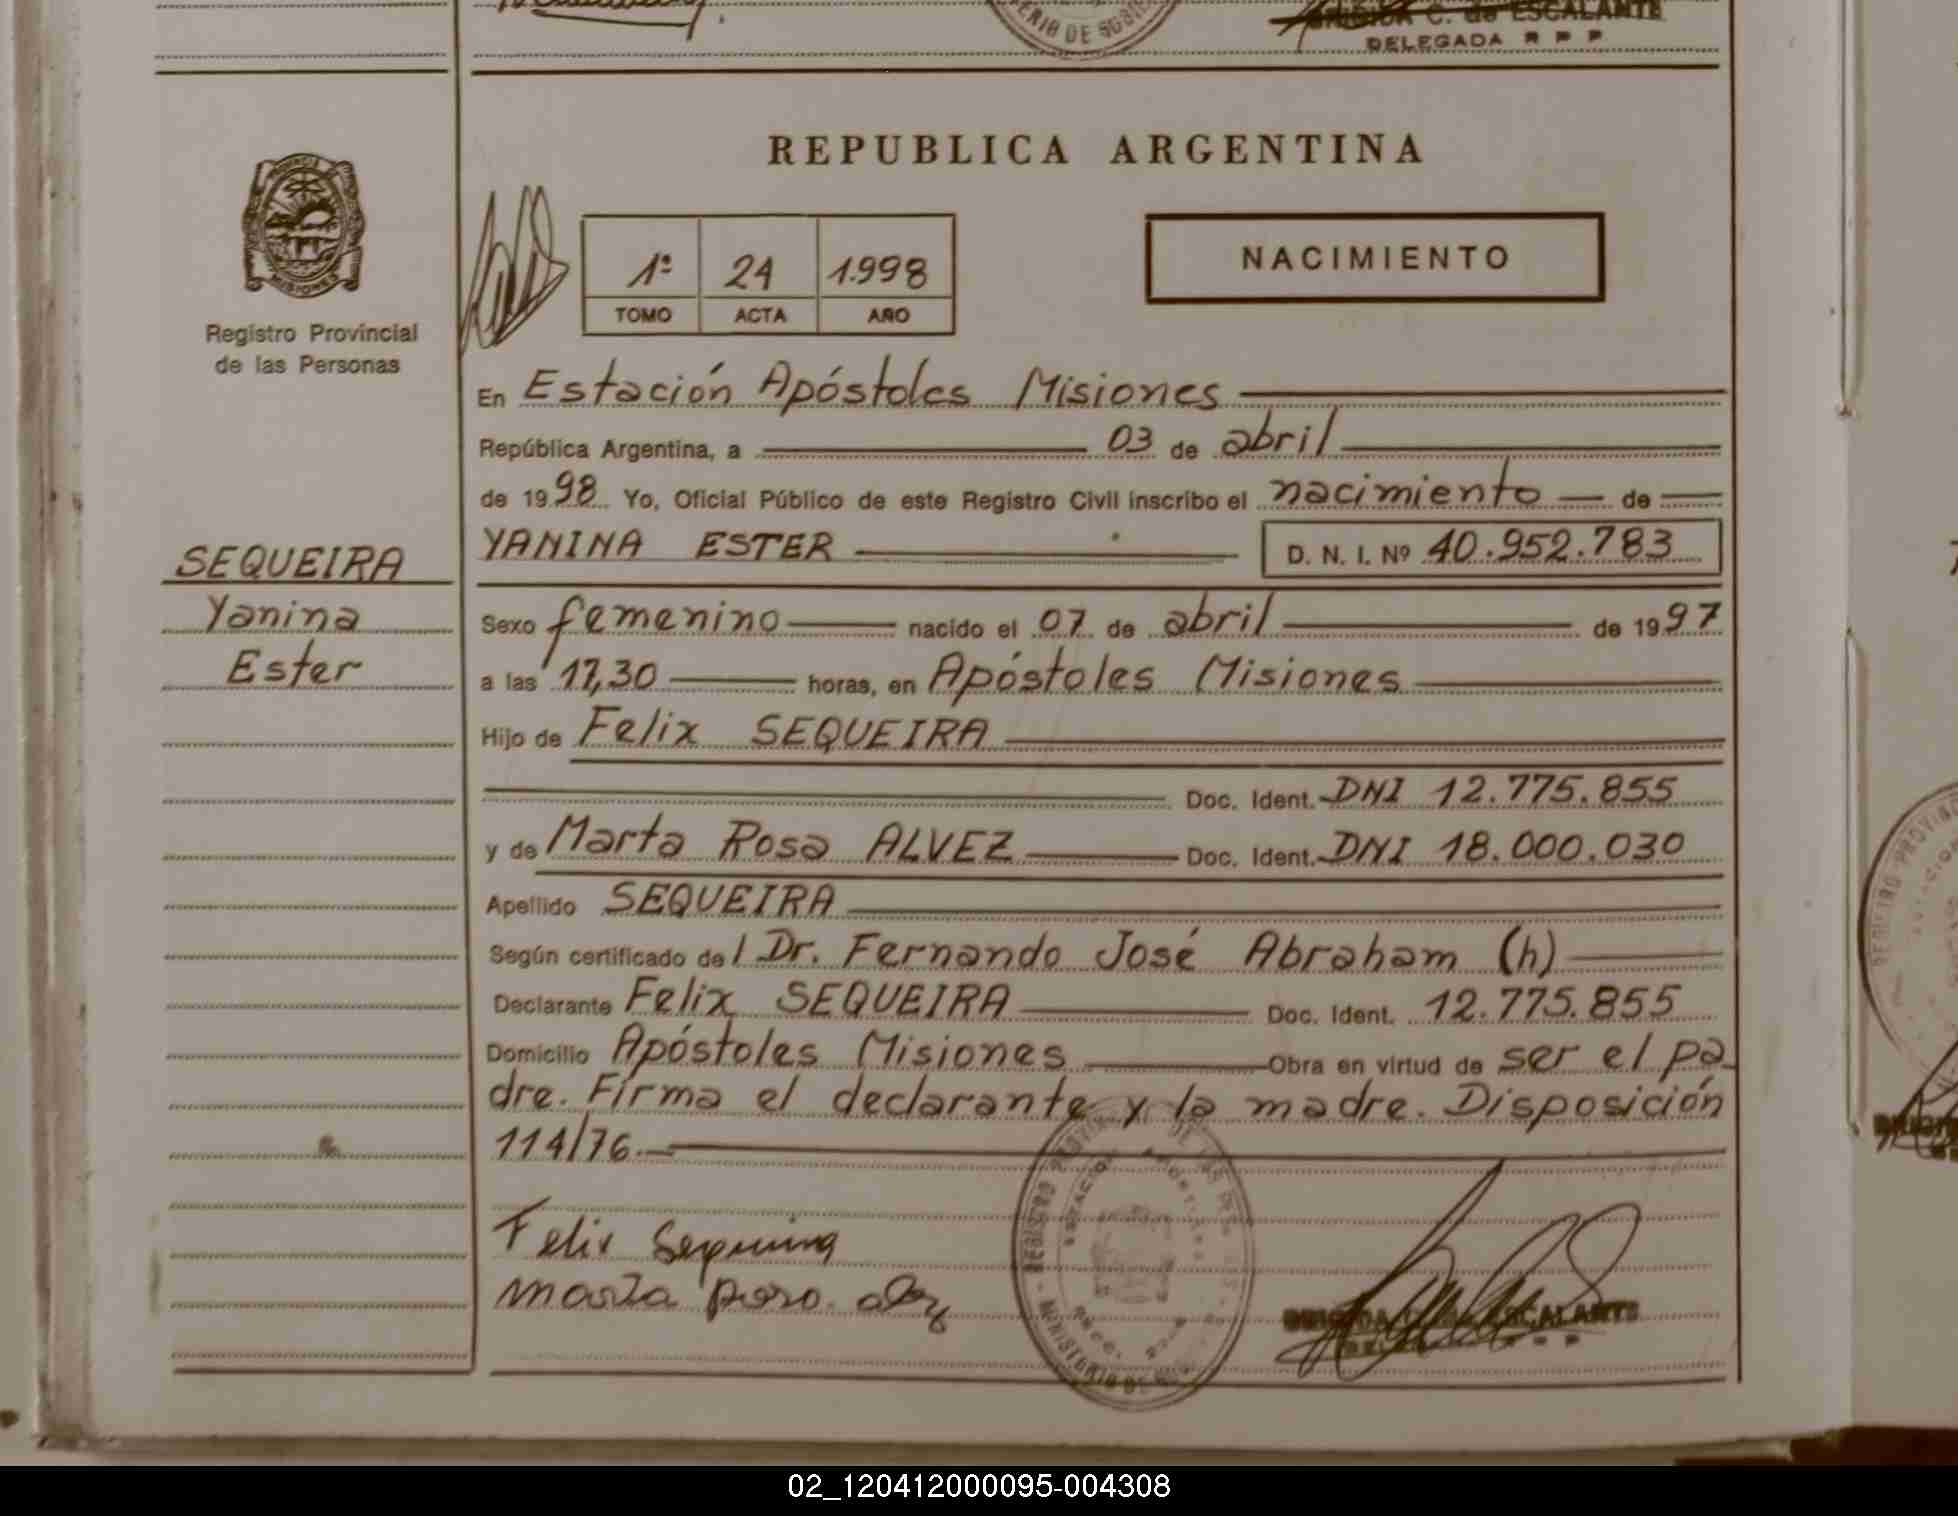 DELEGADA R P P
C. de ESCALANTE
REPUBLICA ARGENTINA
MISIONES
Registro Provincial
de las Personas
1º 24 1.998
TOMO ACTA AÑO
NACIMIENTO
En Estación Apóstoles Misiones
República Argentina, a 03 de abril
de 1998 Yo, Oficial Público de este Registro Civil inscribo el nacimiento de
YANINA ESTER D. N. I. Nº 40.952.783
SEQUEIRA
Yanina
Ester
Sexo femenino nacido el 07 de abril de 1997
a las 17,30 horas, en Apóstoles Misiones
Hijo de Felix SEQUEIRA
Doc. Ident. DNI 12.775.855
y de Marta Rosa ALVEZ Doc. Ident. DNI 18.000.030
Apellido SEQUEIRA
Según certificado del Dr. Fernando José Abraham (h)
Declarante Felix SEQUEIRA Doc. Ident. 12.775.855
Domicilio Apóstoles Misiones Obra en virtud de ser el pa
dre. Firma el declarante y la madre. Disposición
114/76.-
Felix
Marta
REGISTRO DE LAS
MINISTERIO DE
ESCALANTE
02_120412000095-004308